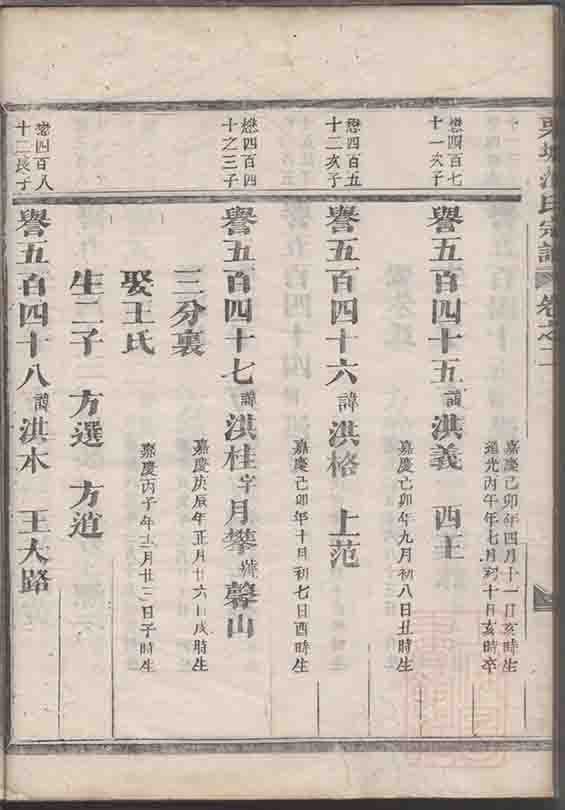 氏宗譜 卷之二
嘉慶己卯年四月十一日亥時生
道光丙午年七月初十日亥時卒
懋四百七
十一次子
譽五百四十五 諱洪義 西主
嘉慶己卯年九月初八日丑時生
懋四百五
十二次子
譽五百四十六 諱洪格 上范
嘉慶己卯年十月初七日酉時生
懋四百四
十之三子
譽五百四十七 諱洪桂 字月攀 號馨山
嘉慶庚辰年正月廿六日戌時生
三分裏
娶王氏
嘉慶丙子年十二月廿三日子時生
生二子 方選 方道
懋四百八
十二長子
譽五百四十八 諱洪木 王大路